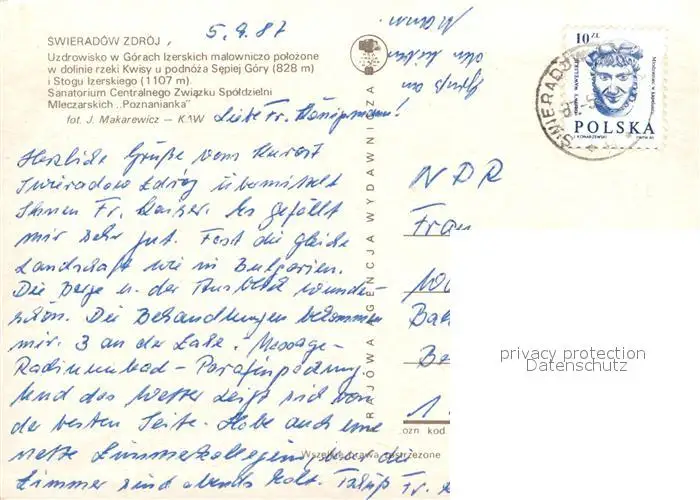 5.9.87
ŚWIERADÓW ZDRÓJ,
Uzdrowisko w Górach Izerskich malowniczo położone
w dolinie rzeki Kwisy u podnóża Sępiej Góry (828 m)
i Stogu Izerskiego (1107 m)
Sanatorium Centralnego Związku Spółdzielni
Mleczarskich „Poznanianka"
fot. J. Makarewicz — KAW
Liebe Fr.
Herzliche Grüße vom Kurort
Świeradow Zdrój übermittelt
Ihnen Fr. Es gefällt
mir sehr gut. Fast die gleiche
Landschaft wie in Bulgarien.
Die Berge u. der Ausblick wunder-
schön. Die Behandlungen bekommen
mir. 3 an der Zahl. Massage-
Radiumbad - Parafinpackung
Und das Wetter zeigt sich von
der besten Seite. Habe auch eine
nette Zimmerkollegin, aber die
Zimmer sind abends kalt. Tschüß Fr.
Gruß an
den lieben
Mann
KRAJOWA AGENCJA WYDAWNICZA
10 ZŁ
POLSKA
ŚWIERADÓW
NDR
Frau
1
ozn kod
Wszelkie prawa zastrzeżone
privacy protection
Datenschutz